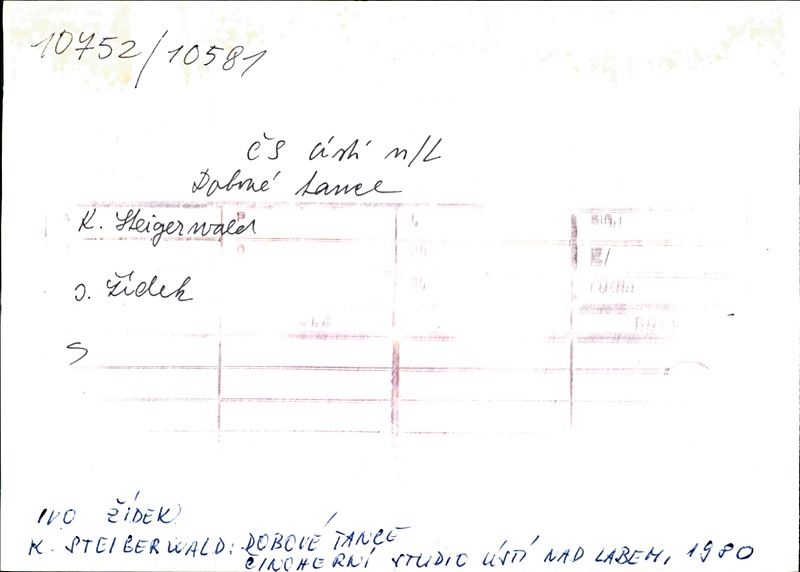 10752/10581
ČS Ústí n/L
Dobové tance
K. Steigerwald
Žídek
IVO ŽÍDEK
K. STEIGERWALD: DOBOVÉ TANCE
ČINOHERNÍ STUDIO ÚSTÍ NAD LABEM, 1980